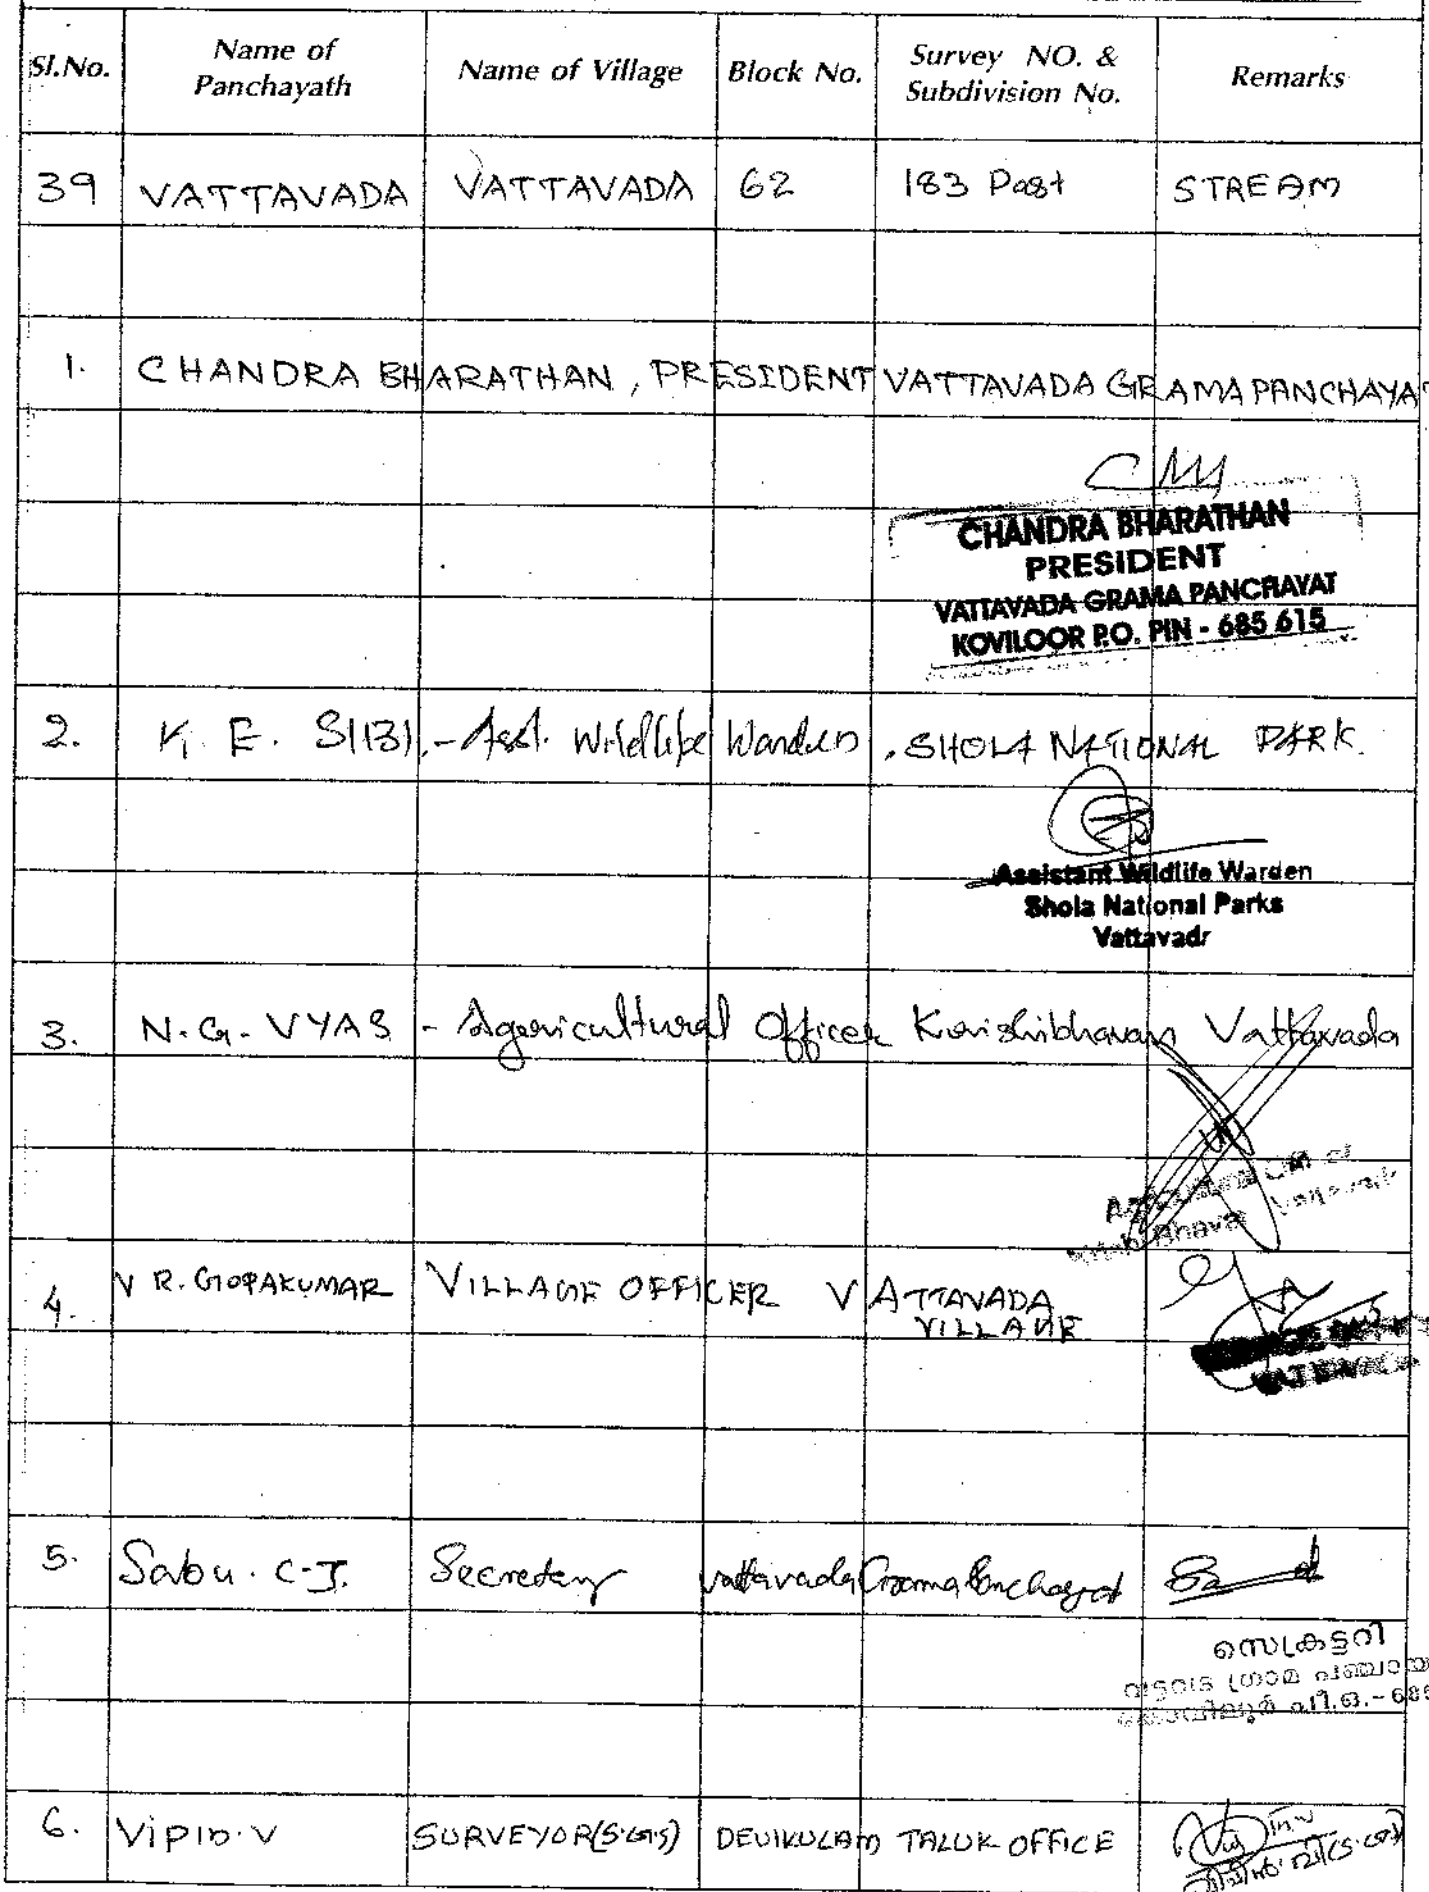 Sl.No. Name of Panchayath Name of Village Block No. Survey NO. & Subdivision No. Remarks
39 VATTAVADA VATTAVADA 62 183 Part STREAM
1. CHANDRA BHARATHAN, PRESIDENT VATTAVADA GRAMA PANCHAYAT
CHANDRA BHARATHAN
PRESIDENT
VATTAVADA GRAMA PANCHAYAT
KOVILOOR P.O. PIN - 685 615
2. K. E. SIBI, - Asst. Wildlife Warden, SHOLA NATIONAL PARK.
Assistant Wildlife Warden
Shola National Parks
Vattavada
3. N. G. VYAS - Agricultural Officer Krishibhavan Vattavada
4. V R. GOPAKUMAR VILLAGE OFFICER VATTAVADA
VILLAGE
5. Sabu. C-J. Secretary Vattavada Grama Panchayat
സെക്രട്ടറി
വട്ടവട ഗ്രാമ പഞ്ചായ
കോവിലൂർ പി.ഒ.-685
6. Vipin. V SURVEYOR(S.G.S) DEVIKULAM TALUK OFFICE